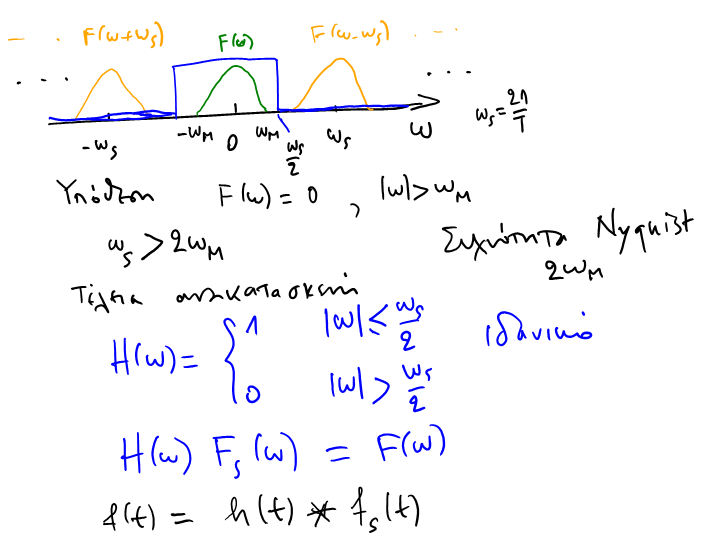 F(ω+ωₛ) F(ω) F(ω-ωₛ)
-ωₛ -ω_M 0 ω_M ωₛ/2 ωₛ ω ωₛ = 2π/T
Υπόθεση F(ω) = 0 , |ω| > ω_M
ωₛ > 2ω_M Συχνότητα Nyquist
2ω_M
Τέλεια ανακατασκευή
H(ω) = { 1 |ω| ≤ ωₛ/2 ιδανικό
0 |ω| > ωₛ/2
H(ω) Fₛ(ω) = F(ω)
f(t) = h(t) * fₛ(t)